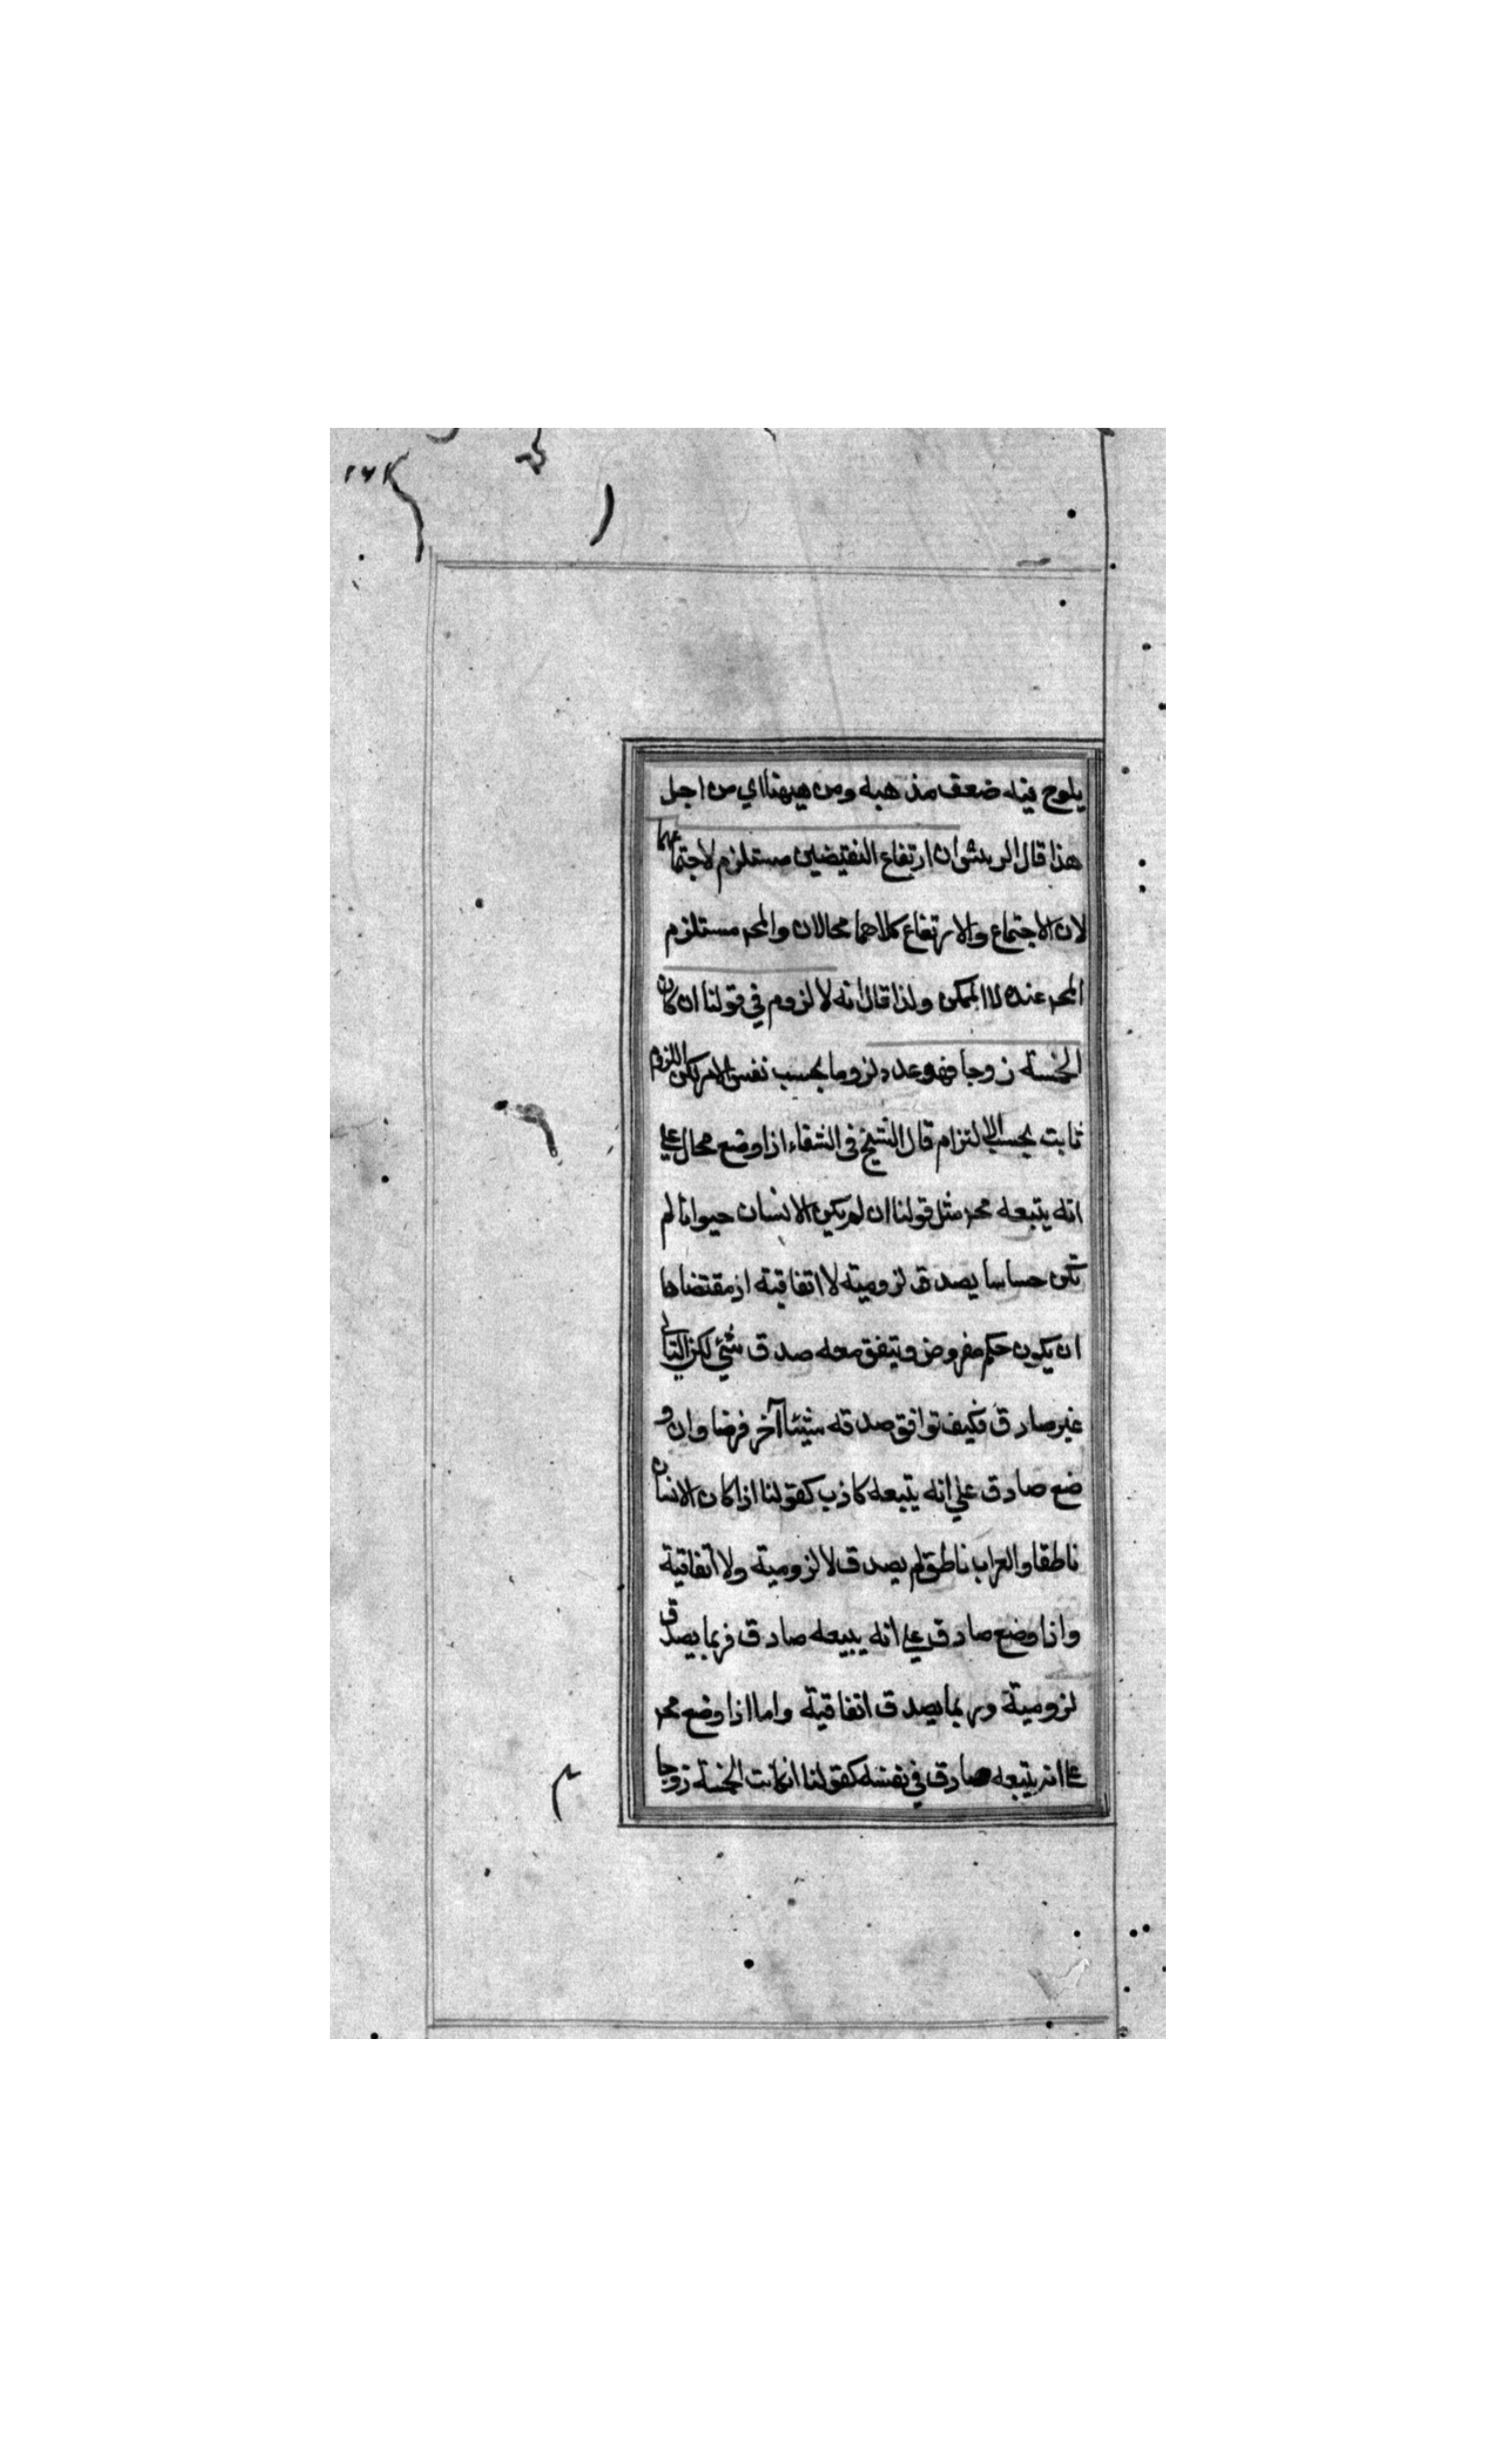 يلوح فيه ضعف مذهبه ومن ههنا اي من اجل
هذا قال الريئس ان ارتفاع النقيضين مستلزم لاجتماعهما
لان الاجتماع والارتفاع كلاهما محالان والمحـ مستلزم
المحـ عنده لا الممكن ولذا قال انه لا لزوم في قولنا ان كان
الخمسة زوجا فهو عدد لزوما بحسب نفس الامر لكن اللزوم
ثابت بحسب الالتزام قال الشيخ فى الشفاء اذا وضع محال علي
انه يتبعه محـ مثل قولنا ان لم يكن الانسان حيوانا لم
تكن حساسا يصدق لزومية لا اتفاقية اذ مقتضاها
ان يكون حكم مفروض ويتفق معه صدق شئي لكن التالى
غير صادق فكيف توافق صدقه شيئا آخر فرضا وان و
ضع صادق علي انه يتبعه كاذب كقولنا اذا كان الانسان
ناطقا والغراب ناطق لم يصدق لا لزومية ولا اتفاقية
واذا وضع صادق علي انه يبيعه صادق فربما يصدق
لزومية وربما يصدق اتفاقية واما اذا وضع محـ
علا انه يتبعه صادق في نفسه كقولنا ان كانت الخمسة زوجا